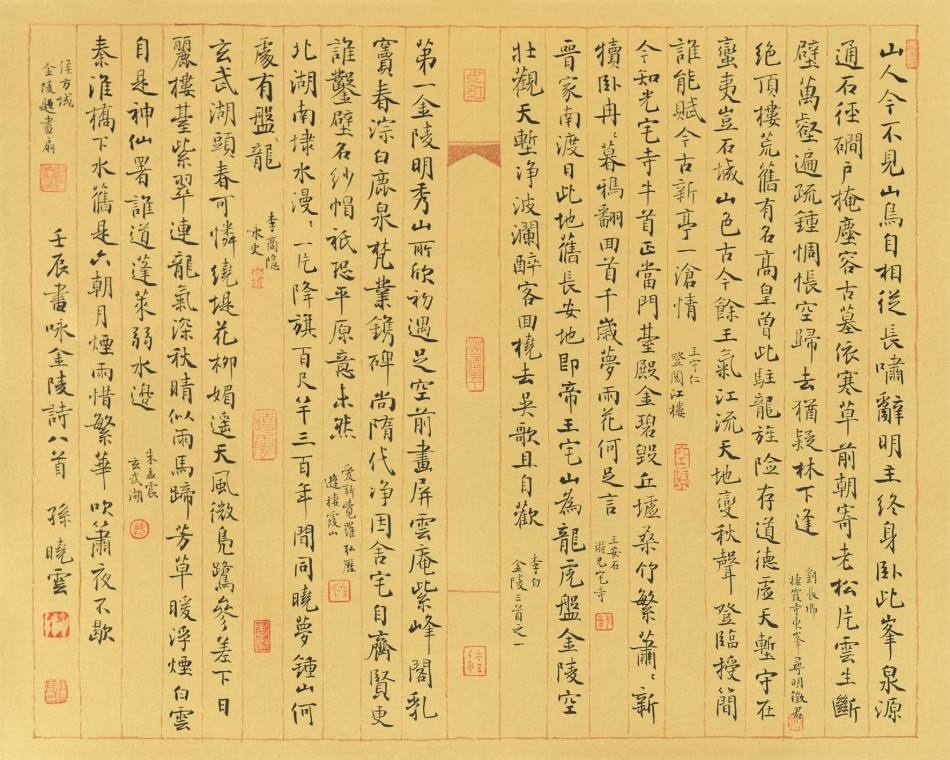 山人今不見山鳥自相從長嘯辭明主終身臥此峯泉源
通石徑磵戶掩塵容古墓依寒草前朝寄老松片雲生斷
壁萬壑遍疏鍾惆悵空歸去猶疑林下逢
劉長卿
棲霞寺東峯尋明徵君
絕頂樓荒舊有名高皇曾此駐龍旌险存道德虛天塹守在
蠻夷豈石城山色古今餘王氣江流天地變秋聲登臨授簡
誰能賦今古新亭一滄情
王守仁
登閱江樓
今知光宅寺牛首正當門臺殿金碧毀丘墟桑竹繁蕭々新
犢臥冉々暮鴉翻回首千歲夢雨花何足言
王安石
遊光宅寺
晉家南渡日此地舊長安地即帝王宅山為龍虎盤金陵空
壯觀天塹净波瀾醉客回橈去吳歌且自歡
李白
金陵三首之一
第一金陵明秀山所欣初遇足空前畫屏雲庵紫峰閣乳
竇春淙白鹿泉梵業鐫碑尚隋代净因舍宅自齊賢更
誰鑿壁名紗帽祇恐平原意未然
愛新覺羅弘曆
遊棲霞山
北湖南埭水漫々一片降旗百尺竿三百年間同曉夢鍾山何
處有盤龍
李商隱
咏史
玄武湖頭春可憐繞堤花柳媚遥天風微鳧鷺參差下日
麗樓臺紫翠連龍氣深秋晴似雨馬蹄芳草暖浮煙白雲
自是神仙署誰道蓬萊弱水邊
朱孟震
玄武湖
秦淮橋下水舊是六朝月煙雨惜繁華吹簫夜不歇
侯方域
金陵題畫扇
壬辰書咏金陵詩八首 孫曉雲